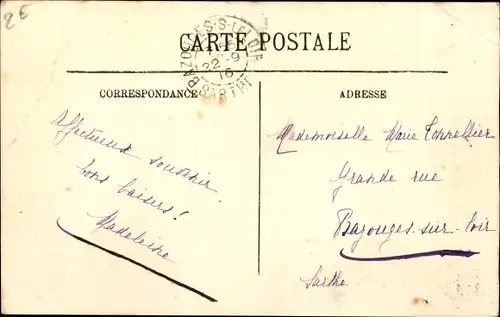 2€
BAZOUGES-S-LE LOIR
22-9
16
SARTHE
CARTE POSTALE
CORRESPONDANCE
ADRESSE
Affectueux souvenir.
bons baisers!
Madeleine
Mademoiselle Marie
Grande rue
Bazouges-sur-Loir
Sarthe